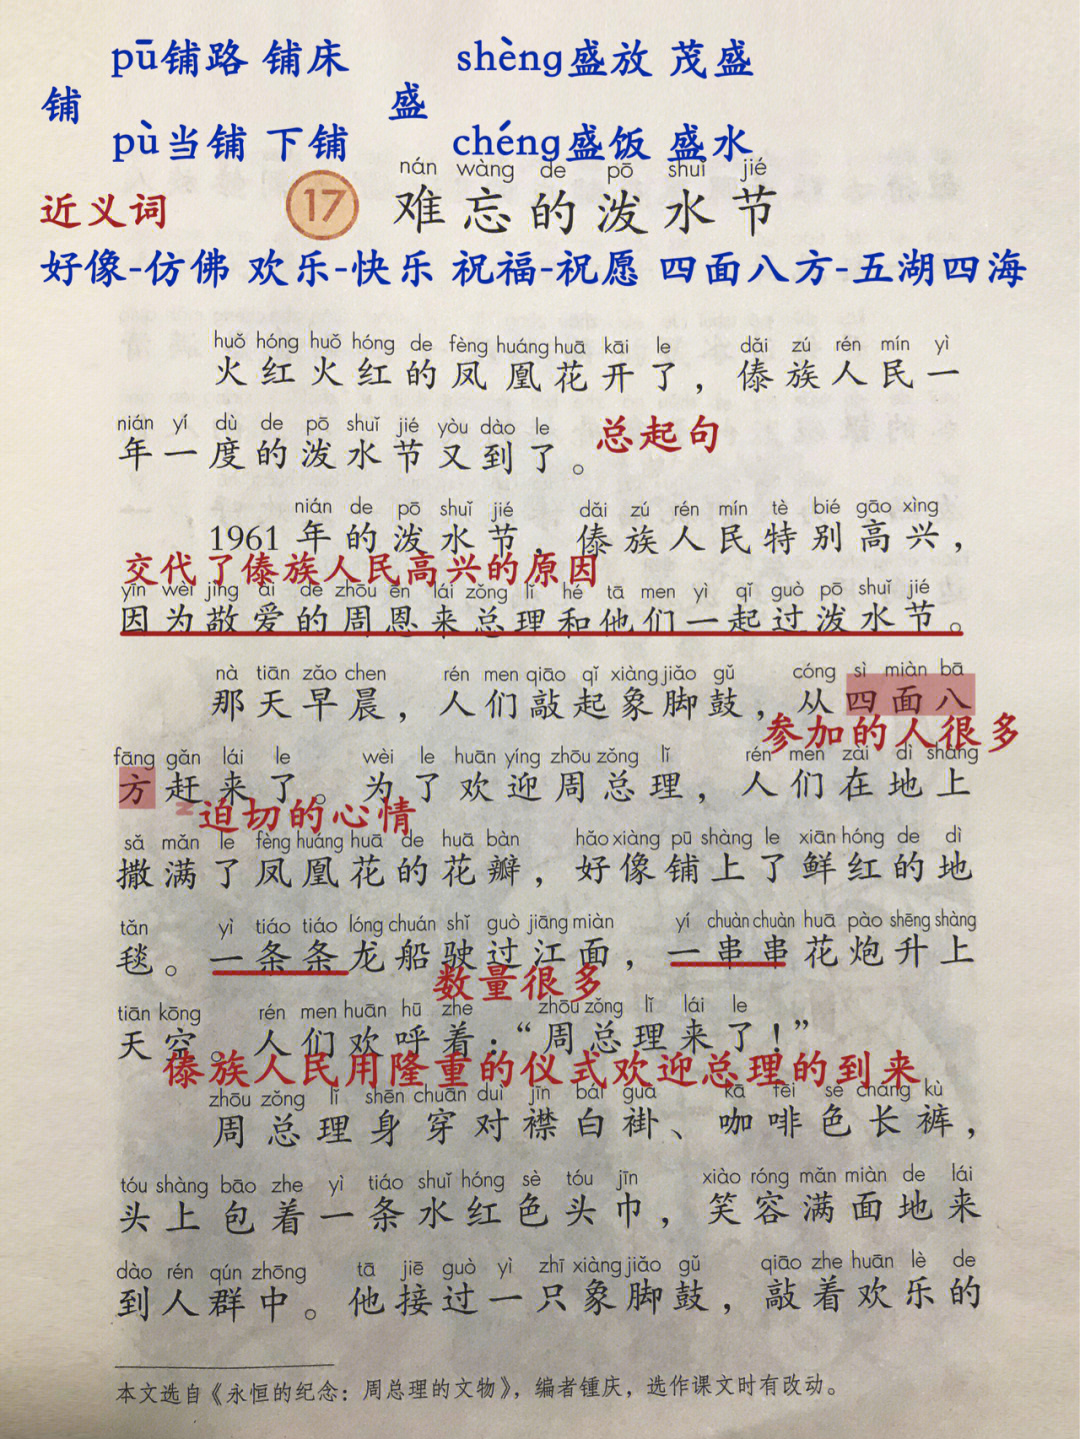 pū铺路 铺床 shèng盛放 茂盛
铺 盛
pù当铺 下铺 chéng盛饭 盛水
nán wàng de pō shuǐ jié
近义词 17 难忘的泼水节
好像-仿佛 欢乐-快乐 祝福-祝愿 四面八方-五湖四海
huǒ hóng huǒ hóng de fèng huáng huā kāi le dǎi zú rén mín yì
火红火红的凤凰花开了，傣族人民一
nián yí dù de pō shuǐ jié yòu dào le
年一度的泼水节又到了。 总起句
nián de pō shuǐ jié dǎi zú rén mín tè bié gāo xìng
1961年的泼水节，傣族人民特别高兴，
交代了傣族人民高兴的原因
yīn wèi jìng ài de zhōu ēn lái zǒng lǐ hé tā men yì qǐ guò pō shuǐ jié
因为敬爱的周恩来总理和他们一起过泼水节。
nà tiān zǎo chen rén men qiāo qǐ xiàng jiǎo gǔ cóng sì miàn bā
那天早晨，人们敲起象脚鼓，从四面八
参加的人很多
fāng gǎn lái le wèi le huān yíng zhōu zǒng lǐ rén men zài dì shàng
方赶来了。为了欢迎周总理，人们在地上
迫切的心情
sǎ mǎn le fèng huáng huā de huā bàn hǎo xiàng pū shàng le xiān hóng de dì
撒满了凤凰花的花瓣，好像铺上了鲜红的地
tǎn yì tiáo tiáo lóng chuán shǐ guò jiāng miàn yí chuàn chuàn huā pào shēng shàng
毯。一条条龙船驶过江面，一串串花炮升上
数量很多
tiān kōng rén men huān hū zhe zhōu zǒng lǐ lái le
天空。人们欢呼着：“周总理来了！”
傣族人民用隆重的仪式欢迎总理的到来
zhōu zǒng lǐ shēn chuān duì jīn bái guà kā fēi sè cháng kù
周总理身穿对襟白褂、咖啡色长裤，
tóu shàng bāo zhe yì tiáo shuǐ hóng sè tóu jīn xiào róng mǎn miàn de lái
头上包着一条水红色头巾，笑容满面地来
dào rén qún zhōng tā jiē guò yì zhī xiàng jiǎo gǔ qiāo zhe huān lè de
到人群中。他接过一只象脚鼓，敲着欢乐的
本文选自《永恒的纪念：周总理的文物》，编者锺庆，选作课文时有改动。